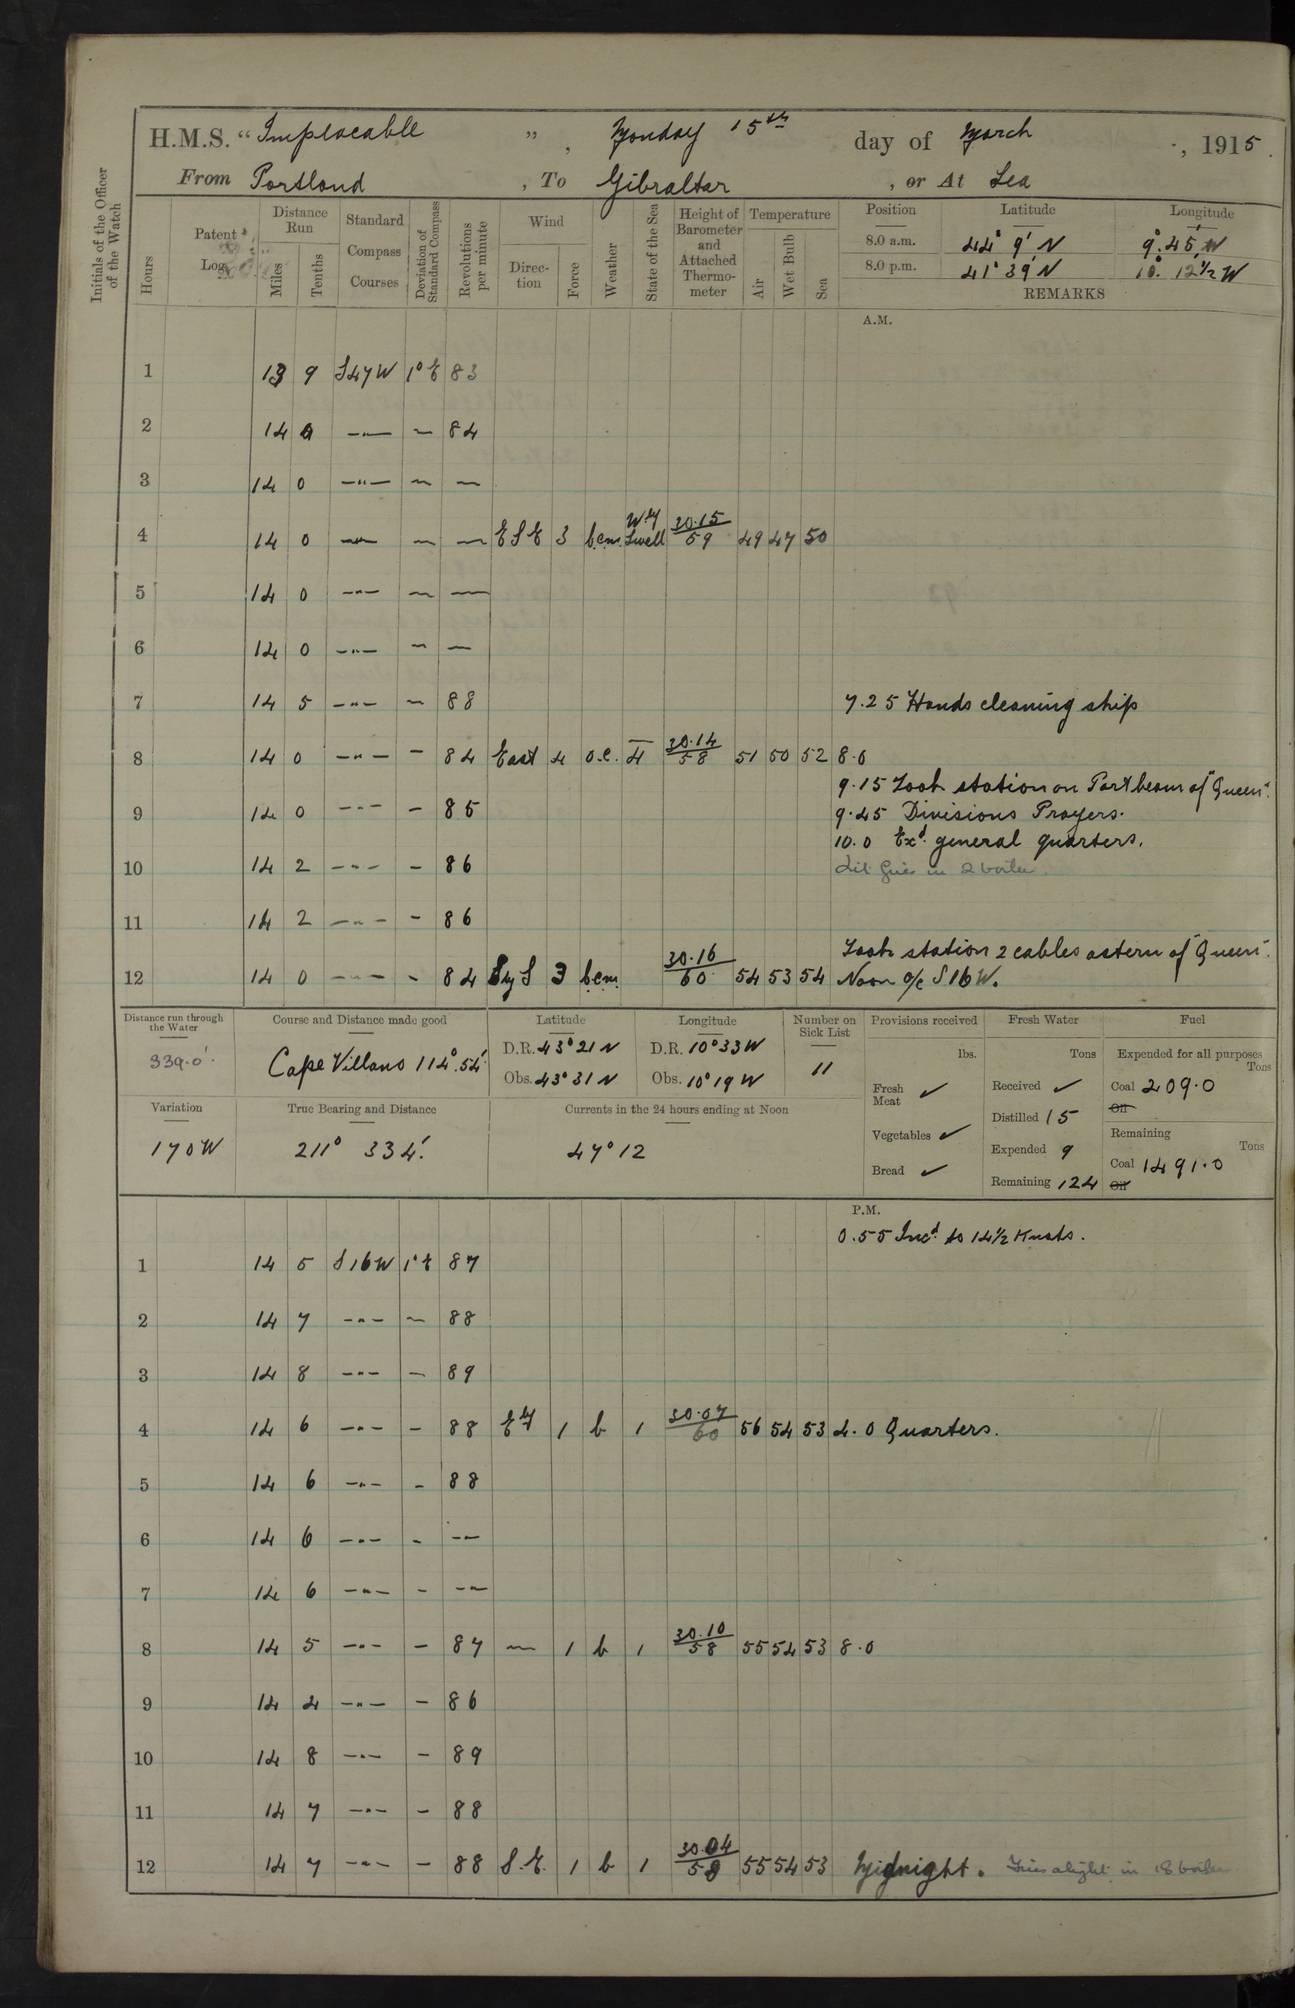 H.M.S. "Implacable", Monday 15th day of March, 1915.
From Portland, To Gibraltar, or At Sea
Initials of the Officer of the Watch
Hours
Patent Log
Distance Run
Miles
Tenths
Standard Compass Courses
Deviation of Standard Compass
Revolutions per minute
Wind
Direction
Force
Weather
State of the Sea
Height of Barometer and Attached Thermometer
Temperature
Air
Wet Bulb
Sea
Position Latitude Longitude
8.0 a.m. 44° 9' N 9° 45' W
8.0 p.m. 41° 39' N 10° 12½ W
REMARKS
A.M.
1 13 9 S47W 1°E 83
2 14 0 —„— — 84
3 14 0 —„— — —
4 14 0 —„— — — ESE 3 b.c.m. Wly Swell 30.15/59 49 47 50
5 14 0 —„— — —
6 14 0 —„— — —
7 14 5 —„— — 88 7.25 Hands cleaning ship
8 14 0 —„— — 84 East 4 o.c. 4 30.14/58 51 50 52 8.0
9.15 Took station on Port beam of "Queen".
9 14 0 —„— — 85 9.45 Divisions Prayers.
10.0 Exd. general quarters.
10 14 2 —„— — 86 Lit fires in 2 boiler
11 14 2 —„— — 86
Took station 2 cables astern of "Queen".
12 14 0 —„— — 84 by S 3 b.c.m. 30.16/60 54 53 54 Noon a/c S16W.
Distance run through the Water
339.0'
Course and Distance made good
Cape Villano 114° 54'
Latitude
D.R. 43° 21 N
Obs. 43° 31 N
Longitude
D.R. 10° 33 W
Obs. 10° 19 W
Number on Sick List
11
Provisions received
lbs.
Fresh Meat ✓
Vegetables ✓
Bread ✓
Fresh Water
Tons
Received ✓
Distilled 15
Expended 9
Remaining 124
Fuel
Expended for all purposes
Tons
Coal 209.0
Oil
Remaining
Tons
Coal 1491.0
Oil
Variation
17 0 W
True Bearing and Distance
211° 334'
Currents in the 24 hours ending at Noon
47° 12
P.M.
0.55 Incd. to 14½ Knots.
1 14 5 S16W 1°E 87
2 14 7 —„— — 88
3 14 8 —„— — 89
4 14 6 —„— — 88 Ely 1 b 1 30.07/60 56 54 53 4.0 Quarters.
5 14 6 —„— — 88
6 14 6 —„— — —„—
7 14 6 —„— — —„—
8 14 5 —„— — 87 — 1 b 1 30.10/58 55 54 53 8.0
9 14 4 —„— — 86
10 14 8 —„— — 89
11 14 7 —„— — 88
12 14 7 —„— — 88 S.E. 1 b 1 30.04/58 55 54 53 Midnight. Fires alight in 18 boiler